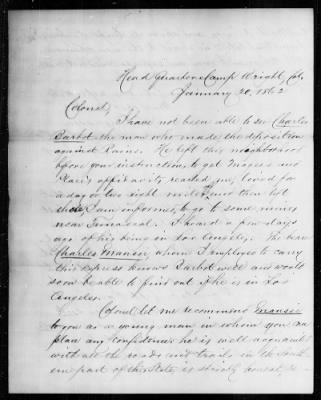 Head Quarters Camp Wright, Cal,
January 20, 1862
Colonel,
I have not been able to see Charles
Barbot the man who made the deposition
against Rains. He left this neighborhood
before your instructions, to get Magees and
affidavits reached me, lived for
a day or two right under me then left
I am informed, to go to some mines
near Temescal. I heard a few days
ago of his being in Los Angeles. The man
Charles Mansin, whom I employ to carry
this express knows Barbot well and would
soon be able to find out if he is in Los
Angeles.
Colonel let me recommend Mansin
to you as a young man in whom you can
place any confidence he is well acquainted
with all the roads and trails in the South
ern part of the State is strictly honest, &